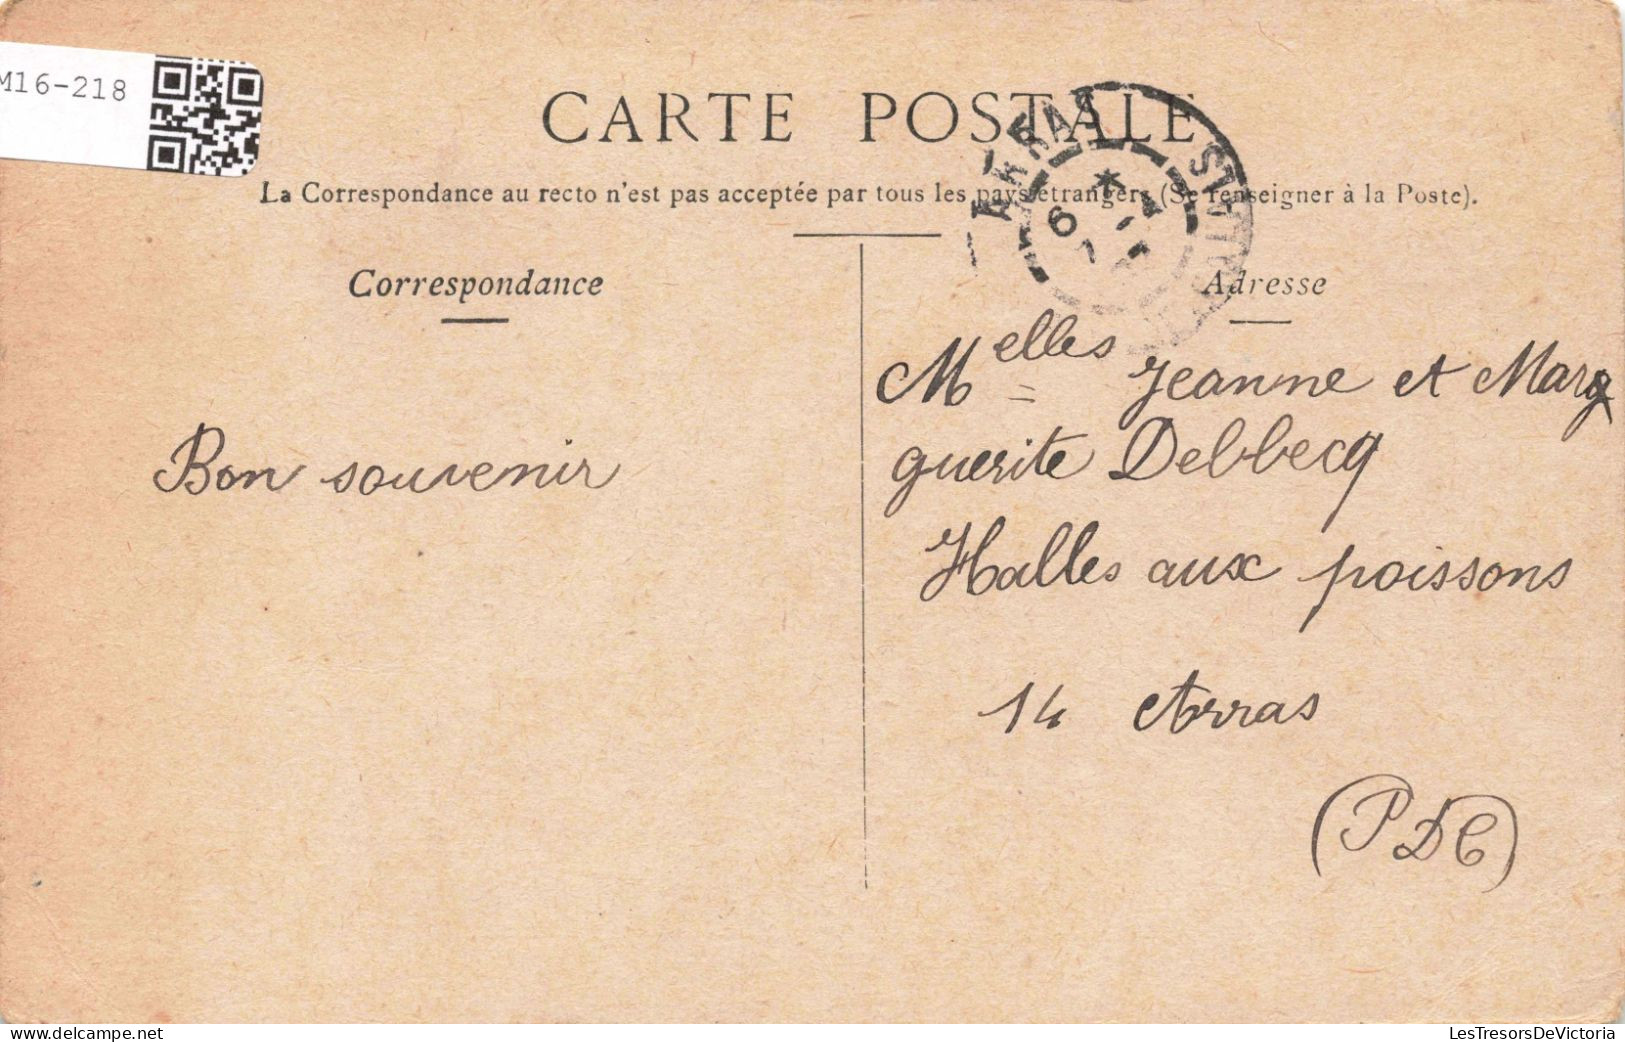 M16-218
CARTE POSTALE
La Correspondance au recto n'est pas acceptée par tous les pays étrangers (Se renseigner à la Poste).
ARRAS
6
Correspondance
Bon souvenir
Adresse
Melles Jeanne et Marg
guerite Delbecq
Halles aux poissons
14 Arras
(PDC)
LesTresorsDeVictoria